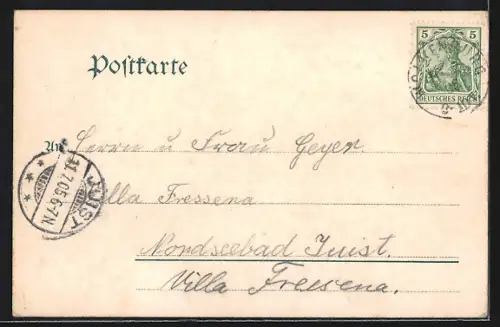 5 5
DEUTSCHES REICH
Postkarte
An Herrn u Frau Geyer
Villa Fressena
JUIST
31.7.05.6-7N
Nordseebad Juist.
Villa Freesena.